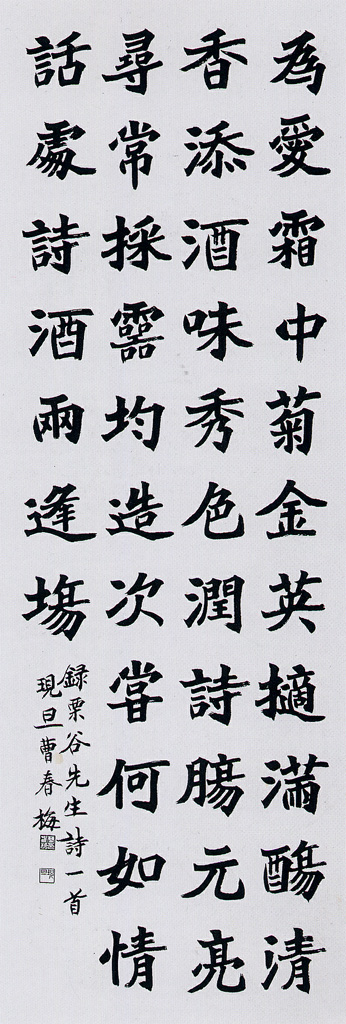 為愛霜中菊金英摘滿觴清
香添酒味秀色潤詩腸元亮
尋常採靈均造次嘗何如情
話處詩酒兩逢場
録栗谷先生詩一首
現旦曹春梅